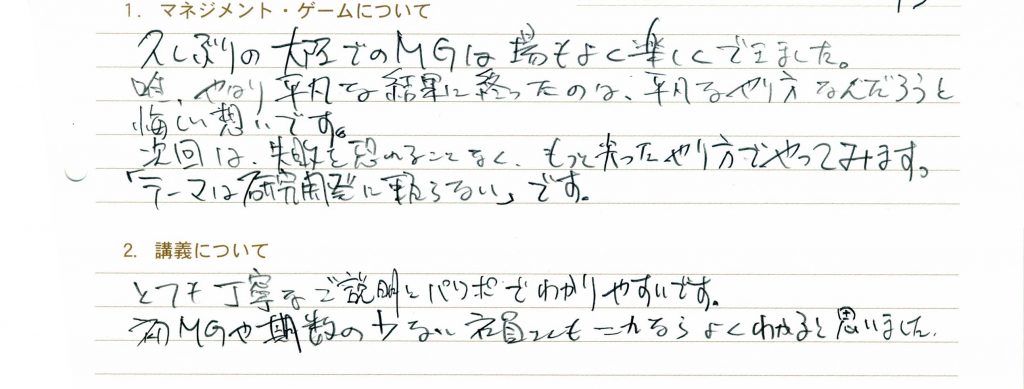 1. マネジメント・ゲームについて
久しぶりの大阪でのMGは場もよく楽しくできました。
唯、やはり平凡な結果に終ったのは、平凡なやり方なんだろうと
悔しい想いです。
次回は、失敗を恐れることなく、もっと尖ったやり方でやってみます。
「テーマは研究開発に頼らない」です。
2. 講義について
とても丁寧なご説明とパワポでわかりやすいです。
初MGや期数の少ない社員でもこれならよくわかると思いました。